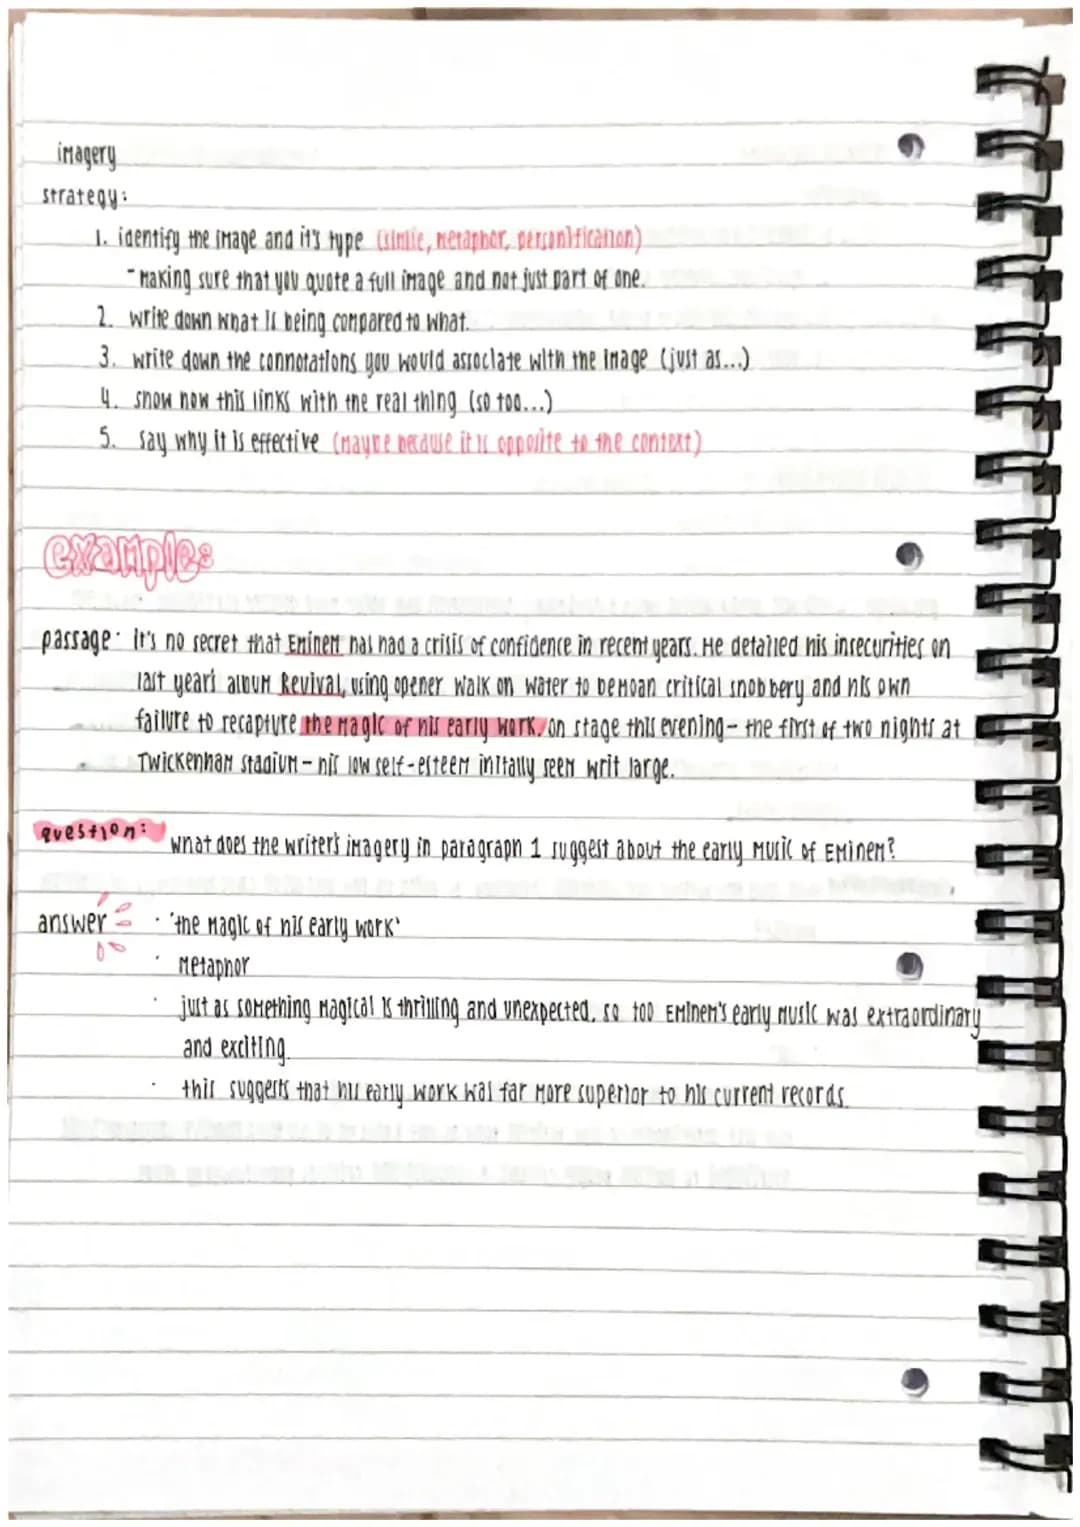 imagery
strategy:
1. identify the image and it's type (simile, metaphor, personification)
- making sure that you quote a full image and not just part of one.
2. write down what is being compared to what.
3. write down the connotations you would associate with the image (just as...)
4. show how this links with the real thing (so too...)
5. say why it is effective (maybe because it is opposite to the context)
examples
passage: it's no secret that Eminem has had a crisis of confidence in recent years. He detailed his insecurities on
last year's album Revival, using opener walk on water to bemoan critical snobbery and his own
failure to recapture the magic of his early work. on stage this evening - the first of two nights at
Twickenham stadium - his low self-esteem initally seem writ large.
question: what does the writer's imagery in paragraph 1 suggest about the early music of Eminem?
answer · 'the magic of his early work'
· Metaphor
· just as something magical is thrilling and unexpected, so too Eminem's early music was extraordinary
and exciting.
· this suggests that his early work was far more superior to his current records.